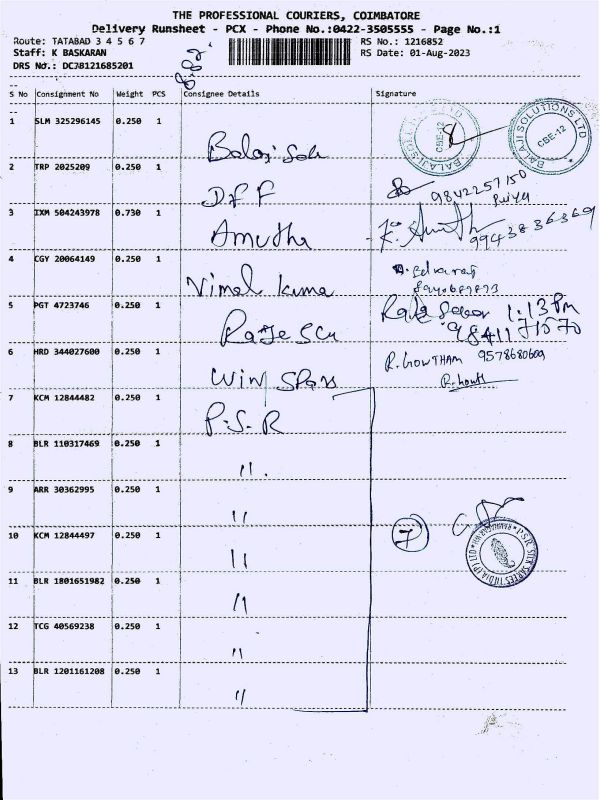 THE PROFESSIONAL COURIERS, COIMBATORE
Delivery Runsheet - PCX - Phone No.:0422-3505555 - Page No.:1
Route: TATABAD 3 4 5 6 7
RS No.: 1216852
Staff: K BASKARAN
RS Date: 01-Aug-2023
DRS No.: DC78121685201
S No Consignment No Weight PCS Consignee Details Signature
1 SLM 325296145 0.250 1
Balaji
8
BALAJI SOLUTIONS LTD
CBE-12
2 TRP 2025209 0.250 1
D F F
9842257150
Priya
3 IXM 504243978 0.730 1
Amutha
9943836369
4 CGY 20064149 0.250 1
Vimal Kuma
5 PGT 4723746 0.250 1
1:13 pm
6 HRD 344027600 0.250 1
R. GOWTHAM 9578680609
7 KCM 12844482 0.250 1
P.S.R
8 BLR 110317469 0.250 1
"
9 ARR 30362995 0.250 1
"
10 KCM 12844497 0.250 1
"
7
PSR SILK SAREES INDIA (P) LTD
11 BLR 1801651982 0.250 1
"
12 TCG 40569238 0.250 1
"
13 BLR 1201161208 0.250 1
"